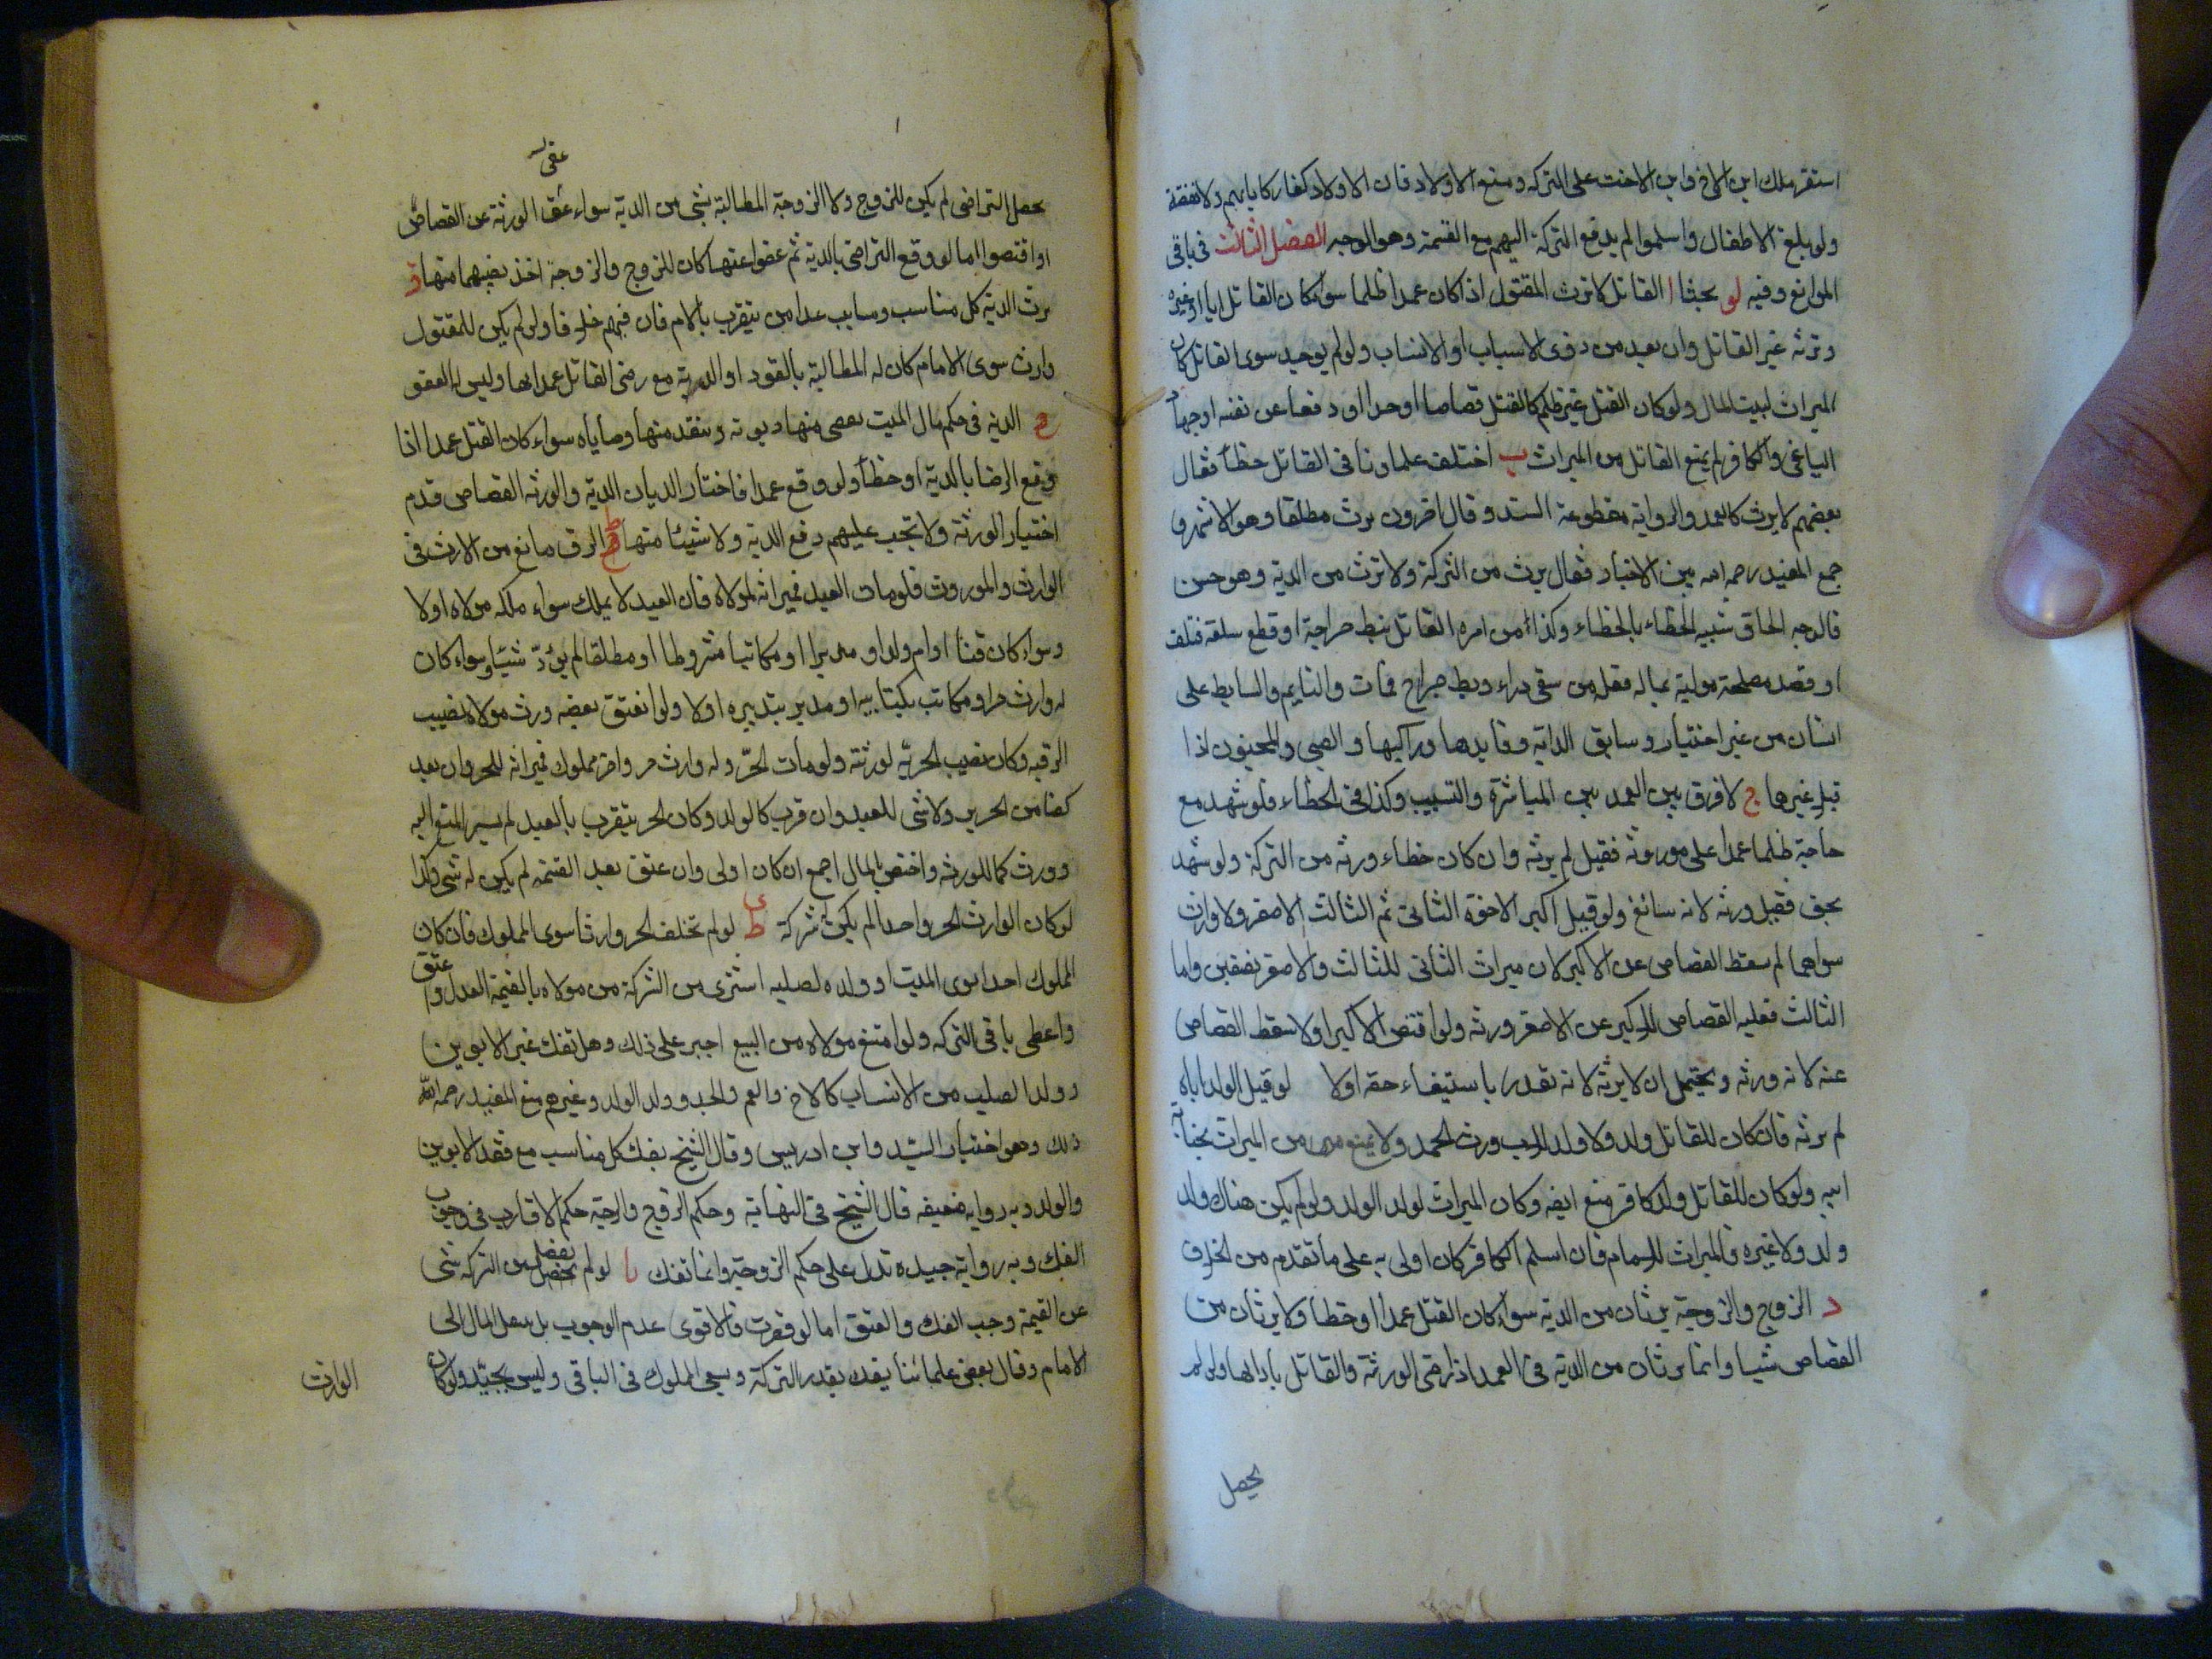 استقر ملك ابن الاخ وابن الاخت على التركه ومنع الاولاد فان الاولاد كفار كابايهم ولا نفقة
ولو بلغ الاطفال واسلموا لم يدفع التركة اليهم مع القسمة وهو الوجه الفصل الثالث فى باقى
الموانع وفيه لو بحثا ا القاتل لا يرث المقتول اذا كان عمدا ظلما سواء كان القاتل ابا او غيره
وترثه غير القاتل وان بعد من ذوى الاسباب او الانساب ولو لم يوجد سوى القاتل كان
الميراث لبيت المال ولو كان القتل غير ظلم كالقتل قصاصا او حدا او دفعا عن نفسه او جهاد
الباغى والكافر لم يمنع القاتل من الميراث ب اختلف علماونا فى القاتل خطأ فقال
بعضهم لا يرث كالعمد والرواية مقطوعة السند وقال اخرون يرث مطلقا وهو الاشهر و
جمع المفيد رحمه الله بين الاخبار فقال يرث من التركة ولا ترث من الدية وهو حسن
فالوجه الحاق شبيه الخطاء بالخطاء وكذا من امره القاتل ببط جراحة او قطع سلعه فتلف
او قصد مصلحة موليه بماله فعله من سقى دواء وبط جراح فمات والنايم والساقط على
انسان من غير اختيار وسايق الدابه وقايدها وراكبها والصبى والمجنون اذا
قتلا غيرهما ج لا فرق بين العمد بين المباشرة والتسبيب وكذا فى الخطاء فلو شهد مع
جماعة ظلما عمدا على مورثه فقتل لم يرثه وان كان خطاء ورثه من التركة ولو شهد
بحق فقتل ورثه لانه سائغ ولو قتل اكبر الاخوة الثانى ثم الثالث الاصغر ولا وارث
سواهما لم يسقط القصاص عن الاكبر لان ميراث الثانى للثالث والاصغر نصفين واما
الثالث فعليه القصاص للاكبر عن الاصغر ورثه ولو اقتص الاكبر اولا سقط القصاص
عنه لانه ورثه ويحتمل ان لا يرثه لانه تعذر باستيفاء حقه اولا لو قتل الولد اباه
لم يرثه فان كان للقاتل ولد ولا ولد للاب ورث الجد ولا يمنع من الميراث بجناية
ابيه ولو كان للقاتل ولد كافر منع ايضه وكان الميراث لولد الولد ولو لم يكن هناك ولد
ولد ولا غيره فالميراث للامام فان اسلم الكافر كان اولى به على ما تقدم من الخلاف
د الزوج والزوجة يرثان من الدية سواء كان القتل عمدا او خطأ ولا يرثان من
القصاص شيا وانما يرثان من الدية فى العمد اذا رضى الورثة والقاتل بادائها ولو لم
يحصل
عفى
يحصل التراضى لم يكن للزوج ولا الزوجة المطالبة بشى من الدية سواء عفى الورثة عن القصاص
او اقتصوا اما لو وقع التراضى بالدية ثم عفوا عنها كان للزوج والزوجة اخذ نصيبهما منها و
يرث الدية كل مناسب ومسابب عدا من يتقرب بالام فان فيهم خلافا ولو لم يكن للمقتول
وارث سوى الامام كان له المطالبة بالقود او الدية مع رضى القاتل عمدا بها وليس له العفو
ح الدية فى حكم مال الميت يقضى منها ديونه وينفذ منها وصاياه سواء كان القتل عمدا اذا
وقع الرضا بالدية او خطأ ولو وقع عمدا فاختار الديان الدية والورثه القصاص قدم
اختيار الورثة ولا تجب عليهم دفع الدية ولا شيئا منها ط الرق مانع من الارث فى
الوارث والموروث فلو مات العبد فميراثه لمولاه فان العبد لا يملك سواء ملكه مولاه اولا
وسواء كان قنا او ام ولد او مدبرا او مكاتبا مشروطا او مطلقا لم يؤد شيئا وسواء كان
له وارث حر او مكاتب بكتابيه او مدبر بتدبيره اولا ولو انعتق بعضه ورث مولاه نصيب
الرقبه وكان نصيب الحريه لورثته ولو مات الحر وله وارث حر واخر مملوك فميراثه للحر وان بعد
كضامن الجريره ولا شى للعبد وان قرب كالولد ولو كان الحر يتقرب بالعبد لم يسر المنع اليه
وورث كمال الورثه واختص بالمال اجمع ان كان اولى وان عتق بعد القسمه لم يكن له شى وكذا
لو كان الوارث الحر واحدا لم يكن شركة ى لو لم تخلف الحر وارثا سوى المملوك فان كان
المملوك احد ابوى الميت او ولده لصلبه اشترى من التركة من مولاه بالقيمة العدل وعتق
واعطى باقى التركه ولو امتنع مولاه من البيع اجبر على ذلك وهل تفك غير الابوين
وولد الصلب من الانساب كالاخ والعم والجد وولد الولد وغيرهم منع المفيد رحمه الله
ذلك وهو اختيار السيد وابن ادريس وقال الشيخ يفك كل مناسب مع فقد الابوين
والولد وبه رواية ضعيفه قال الشيخ فى النهاية وحكم الزوج والزوجة حكم الاقارب فى وجوب
الفك وبه رواية جيده تدل على حكم الزوجة وانما تفك يا لو لم يفضل من التركه شى
عن القيمة وجب الفك والعتق اما لو قصرت فالاقوى عدم الوجوب بل ينتقل المال الى
الامام وقال بعض علمائنا يفك بقدر التركة ويسعى المملوك فى الباقى وليس بجيد ولو كان
الوارث